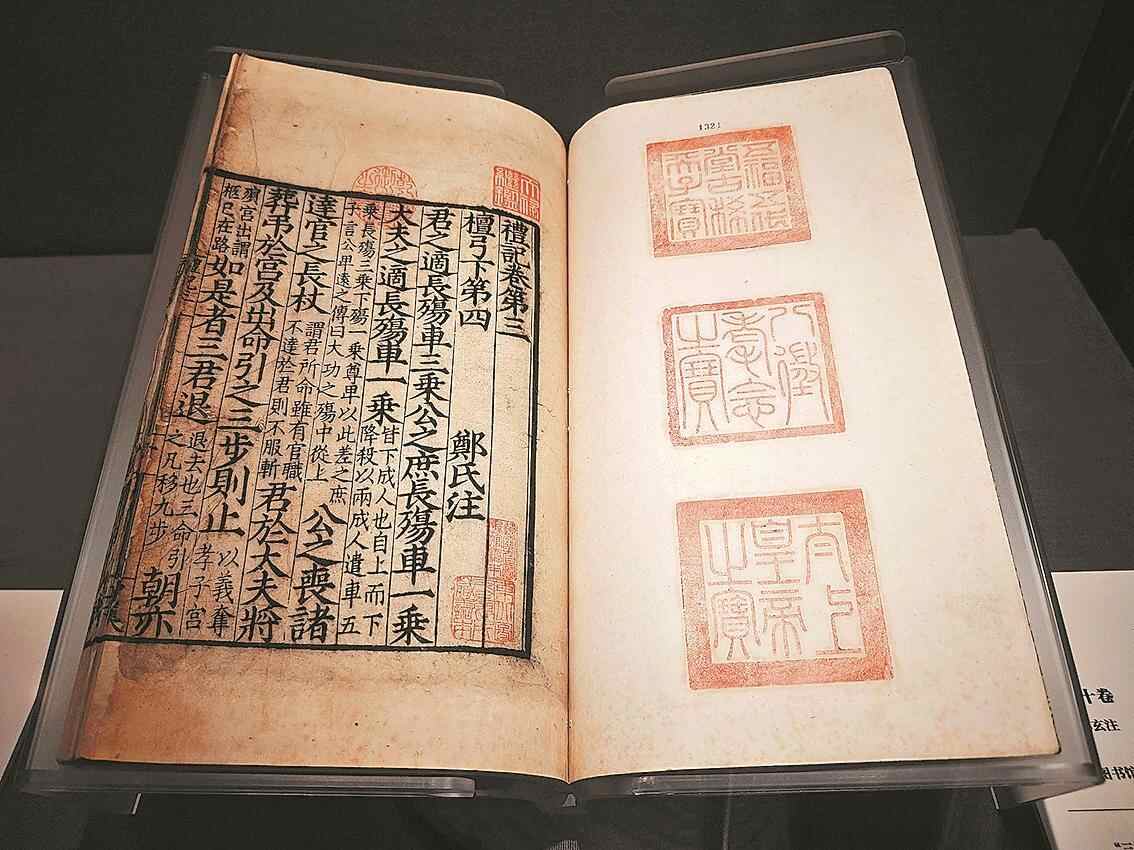 1321
五福五代堂古稀天子寶
八徵耄念之寶
太上皇帝之寶
天祿繼鑑
禮記卷第三
檀弓下第四 鄭氏注
君之適長殤車三乘公之庶長殤車一乘
大夫之適長殤車一乘皆下成人也自上而下降殺以兩成人遣車五
乘長殤三乘下殤一乘尊卑以此差之庶子言公卑遠之傳曰大功之殤中從上公之喪諸
達官之長杖謂君所命雖有官職不達於君則不服斬君於大夫將
葬弔於宮及出命引之三步則止以義奪孝子宮
殯宮出謂柩已在路如是者三君退退去也三命引之凡移九步朝亦
十卷
玄注
图书馆